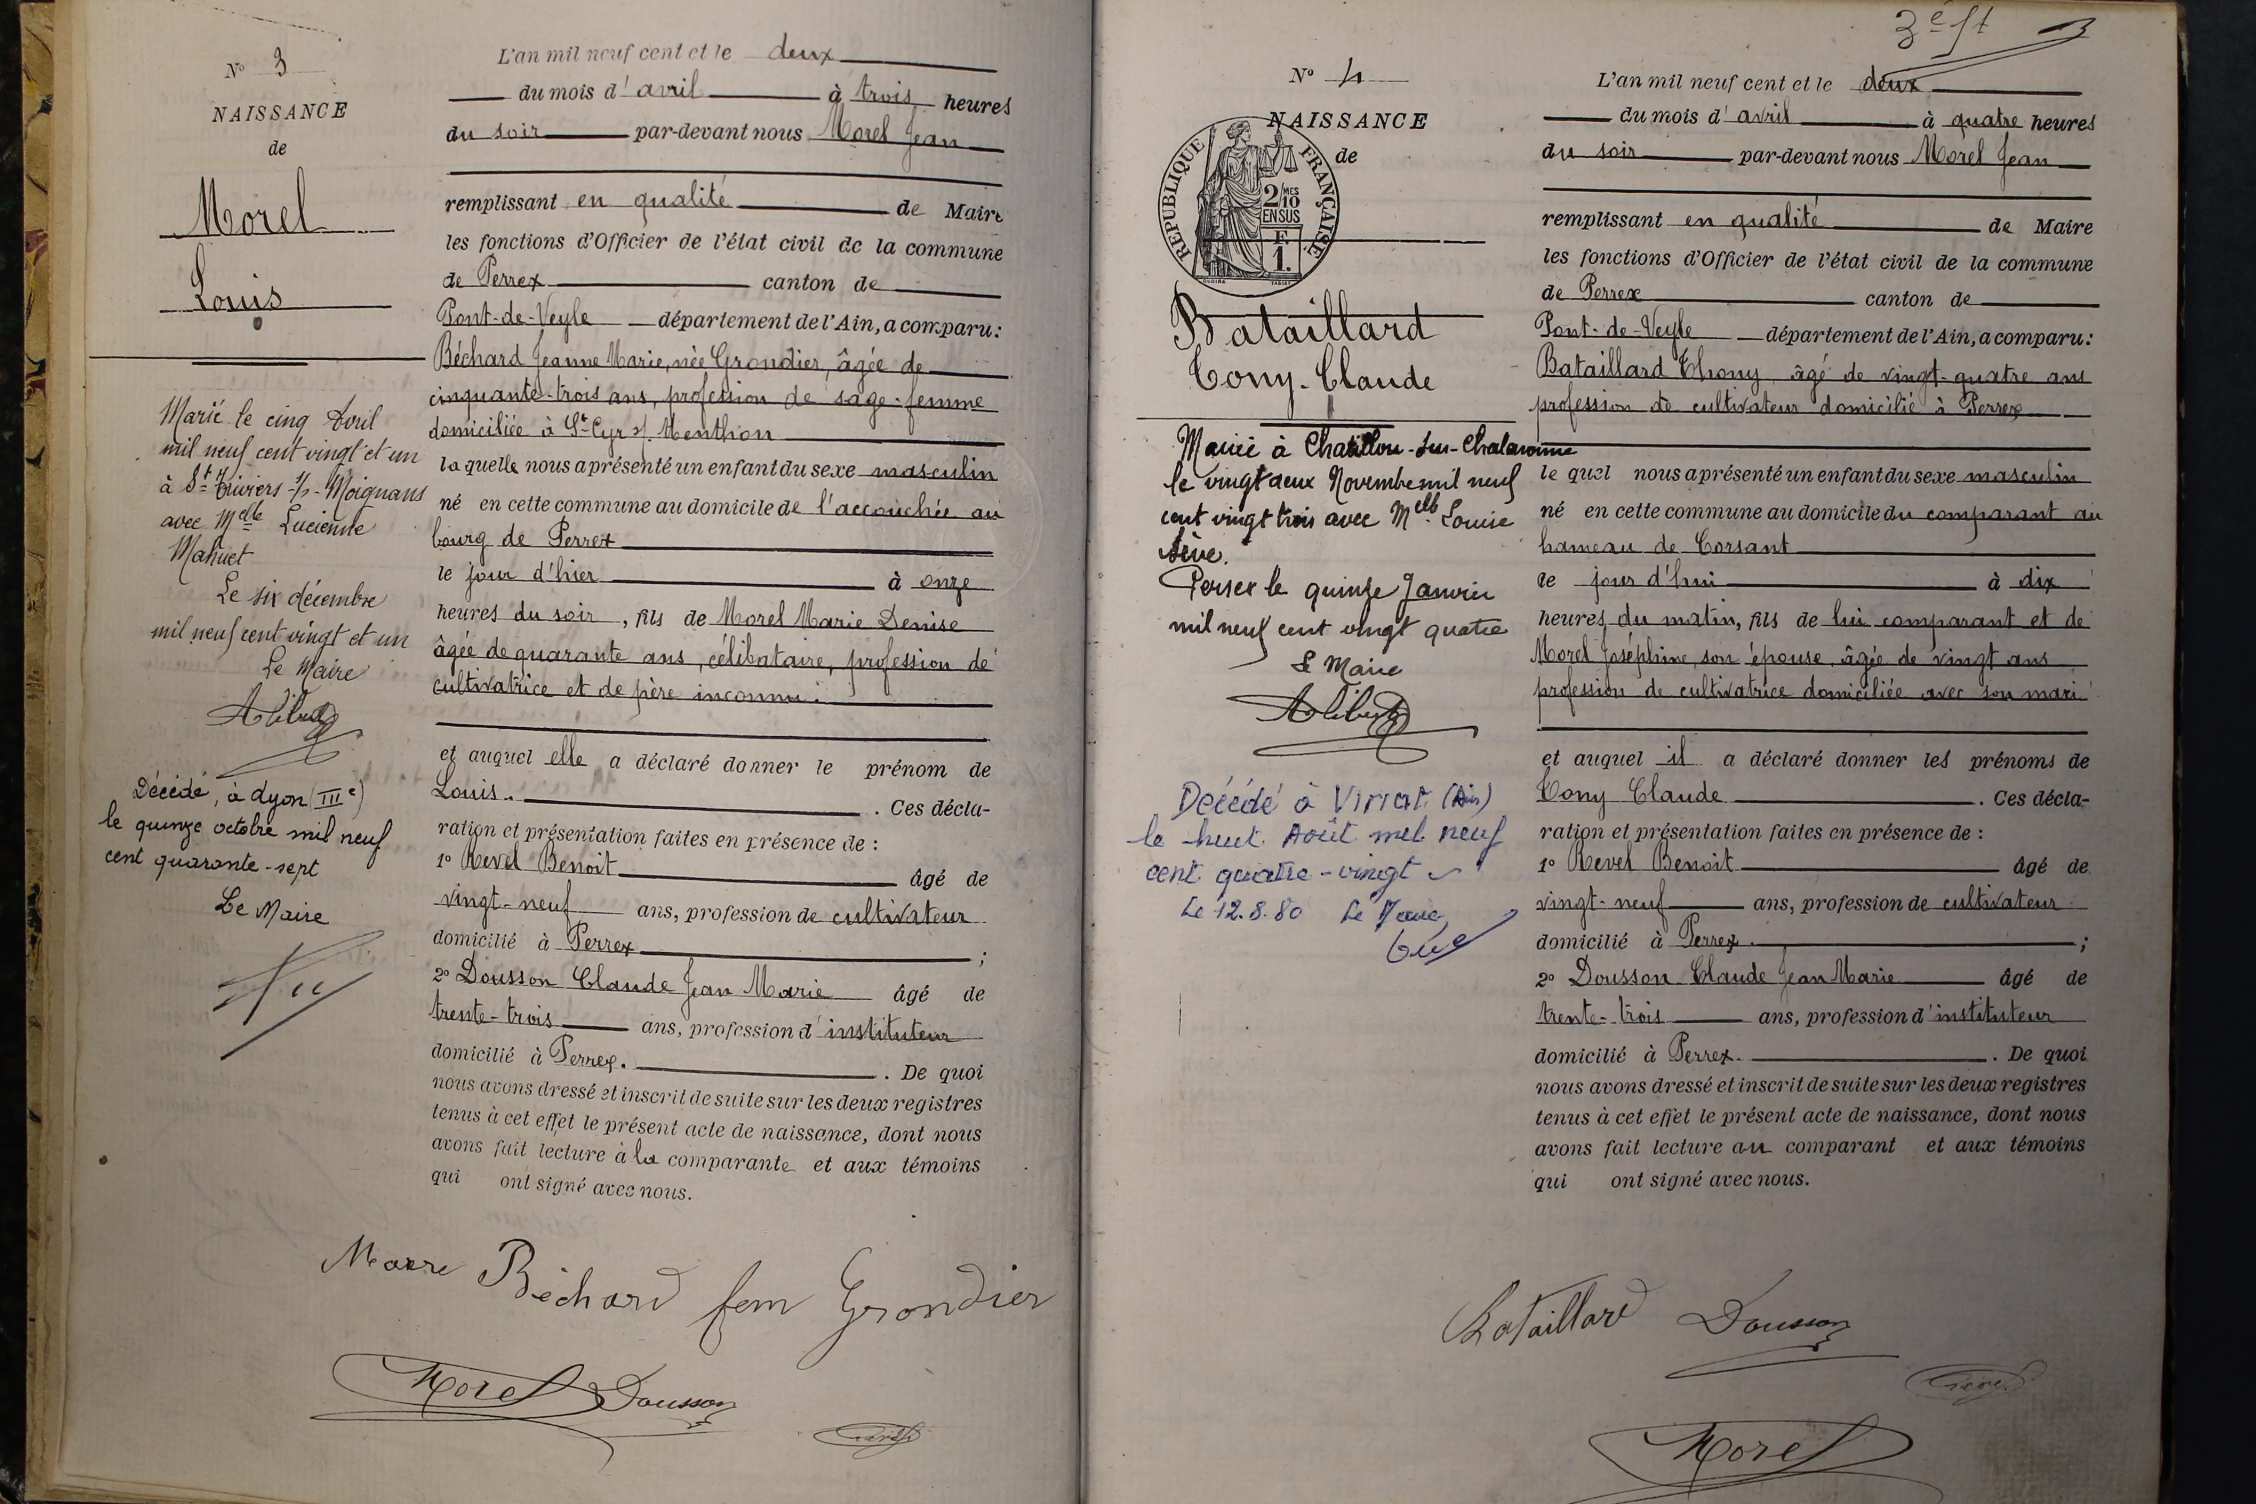 Nº 3
NAISSANCE
de
Morel
Louis
Marié le cinq Avril
mil neuf cent vingt et un
à St Triviers s/- Moignans
avec Melle Lucienne
Mahuet
Le six décembre
mil neuf cent vingt et un
Le Maire
Décédé, à Lyon (IIIe)
le quinze octobre mil neuf
cent quarante-sept
Le Maire
L'an mil neuf cent et le deux
du mois d'avril à trois heures
du soir par-devant nous Morel Jean
remplissant en qualité de Maire
les fonctions d'Officier de l'état civil de la commune
de Perrex canton de
Pont-de-Veyle département de l'Ain, a comparu:
Béchard Jeanne Marie, née Grondier, âgée de
cinquante-trois ans, profession de sage-femme
domiciliée à St-Cyr s/. Menthon
laquelle nous a présenté un enfant du sexe masculin
né en cette commune au domicile de l'accouchée au
bourg de Perrex
le jour d'hier à onze
heures du soir, fils de Morel Marie Denise
âgée de quarante ans, célibataire, profession de
cultivatrice et de père inconnu.
et auquel elle a déclaré donner le prénom de
Louis. . Ces décla-
ration et présentation faites en présence de :
1º Revel Benoit âgé de
vingt-neuf ans, profession de cultivateur
domicilié à Perrex ;
2º Dousson Claude Jean Marie âgé de
trente-trois ans, profession d'instituteur
domicilié à Perrex. . De quoi
nous avons dressé et inscrit de suite sur les deux registres
tenus à cet effet le présent acte de naissance, dont nous
avons fait lecture à la comparante et aux témoins
qui ont signé avec nous.
Béchard fem Grondier
Morel Dousson
3é ft
Nº 4
NAISSANCE
de
RÉPUBLIQUE FRANÇAISE
2/10MES
EN SUS
F.
1.
Bataillard
Tony-Claude
Marié à Chatillon-sur-Chalaronne
le vingt deux Novembre mil neuf
cent vingt trois avec Melle Louise
Sève.
Perrex le quinze Janvier
mil neuf cent vingt quatre
Le Maire
Décédé à Viriat (Ain)
le huit Août mil neuf
cent quatre-vingt
Le 12.8.80 Le Maire
L'an mil neuf cent et le deux
du mois d'avril à quatre heures
du soir par-devant nous Morel Jean
remplissant en qualité de Maire
les fonctions d'Officier de l'état civil de la commune
de Perrex canton de
Pont-de-Veyle département de l'Ain, a comparu:
Bataillard Thony âgé de vingt-quatre ans
profession de cultivateur domicilié à Perrex
le quel nous a présenté un enfant du sexe masculin
né en cette commune au domicile du comparant au
hameau de Corsant
le jour d'hui à dix
heures du matin, fils de lui comparant et de
Morel Joséphine, son épouse, âgée de vingt ans
profession de cultivatrice domiciliée avec son mari
et auquel il a déclaré donner les prénoms de
Tony Claude . Ces décla-
ration et présentation faites en présence de :
1º Revel Benoit âgé de
vingt-neuf ans, profession de cultivateur
domicilié à Perrex. ;
2º Dousson Claude Jean Marie âgé de
trente-trois ans, profession d'instituteur
domicilié à Perrex. . De quoi
nous avons dressé et inscrit de suite sur les deux registres
tenus à cet effet le présent acte de naissance, dont nous
avons fait lecture au comparant et aux témoins
qui ont signé avec nous.
Bataillard Dousson
Morel